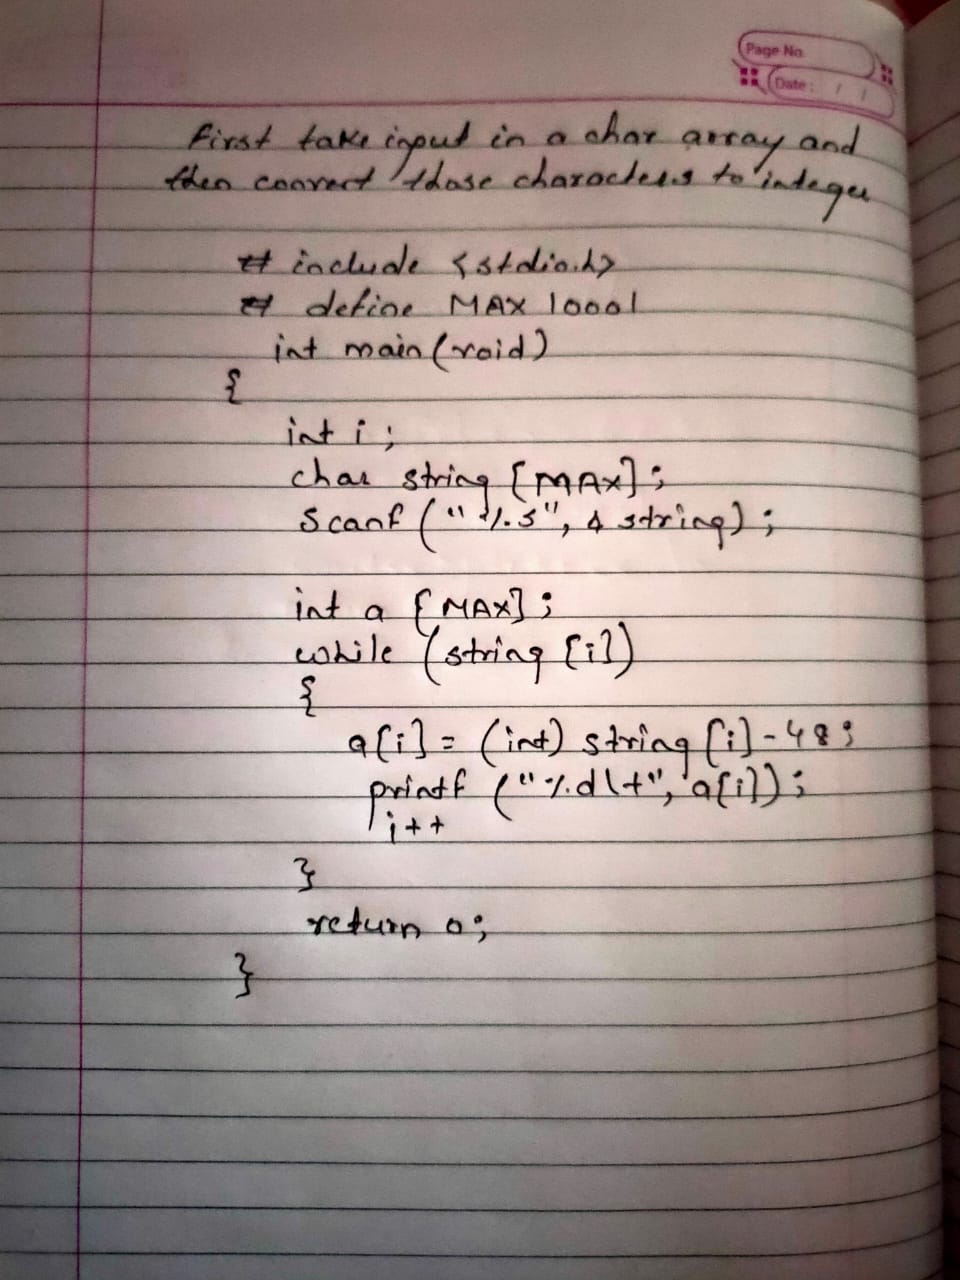 Page No.
Date: / /
First take input in a char array and
then convert those characters to integer
# include <stdio.h>
# define MAX 10001
int main(void)
{
int i;
char string [MAX];
scanf ("%s", & string);
int a [MAX];
while (string [i])
{
a[i] = (int) string [i]-48;
printf ("%d\t", a[i]);
i++
}
return 0;
}